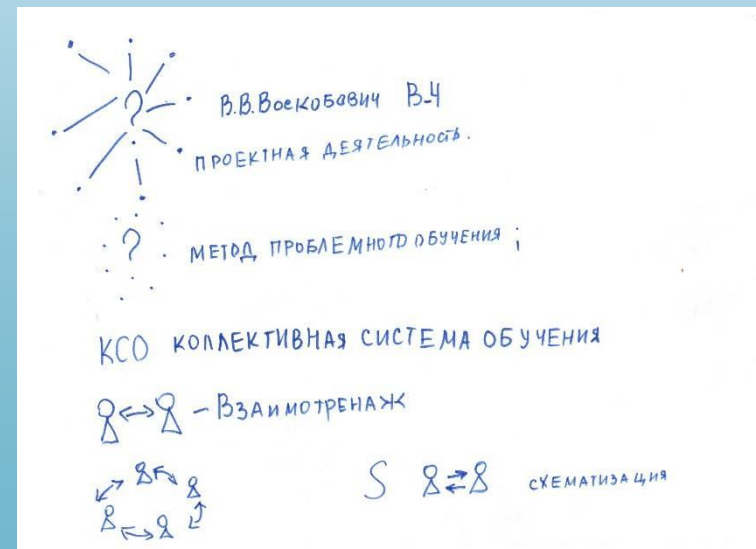 ?
В.В.Воскобавич В-Ч
ПРОЕКТНАЯ ДЕЯТЕЛЬНОСТЬ.
? МЕТОД ПРОБЛЕМНОГО ОБУЧЕНИЯ ;
КСО КОЛЛЕКТИВНАЯ СИСТЕМА ОБУЧЕНИЯ
– ВЗАИМОТРЕНАЖ
S СХЕМАТИЗАЦИЯ